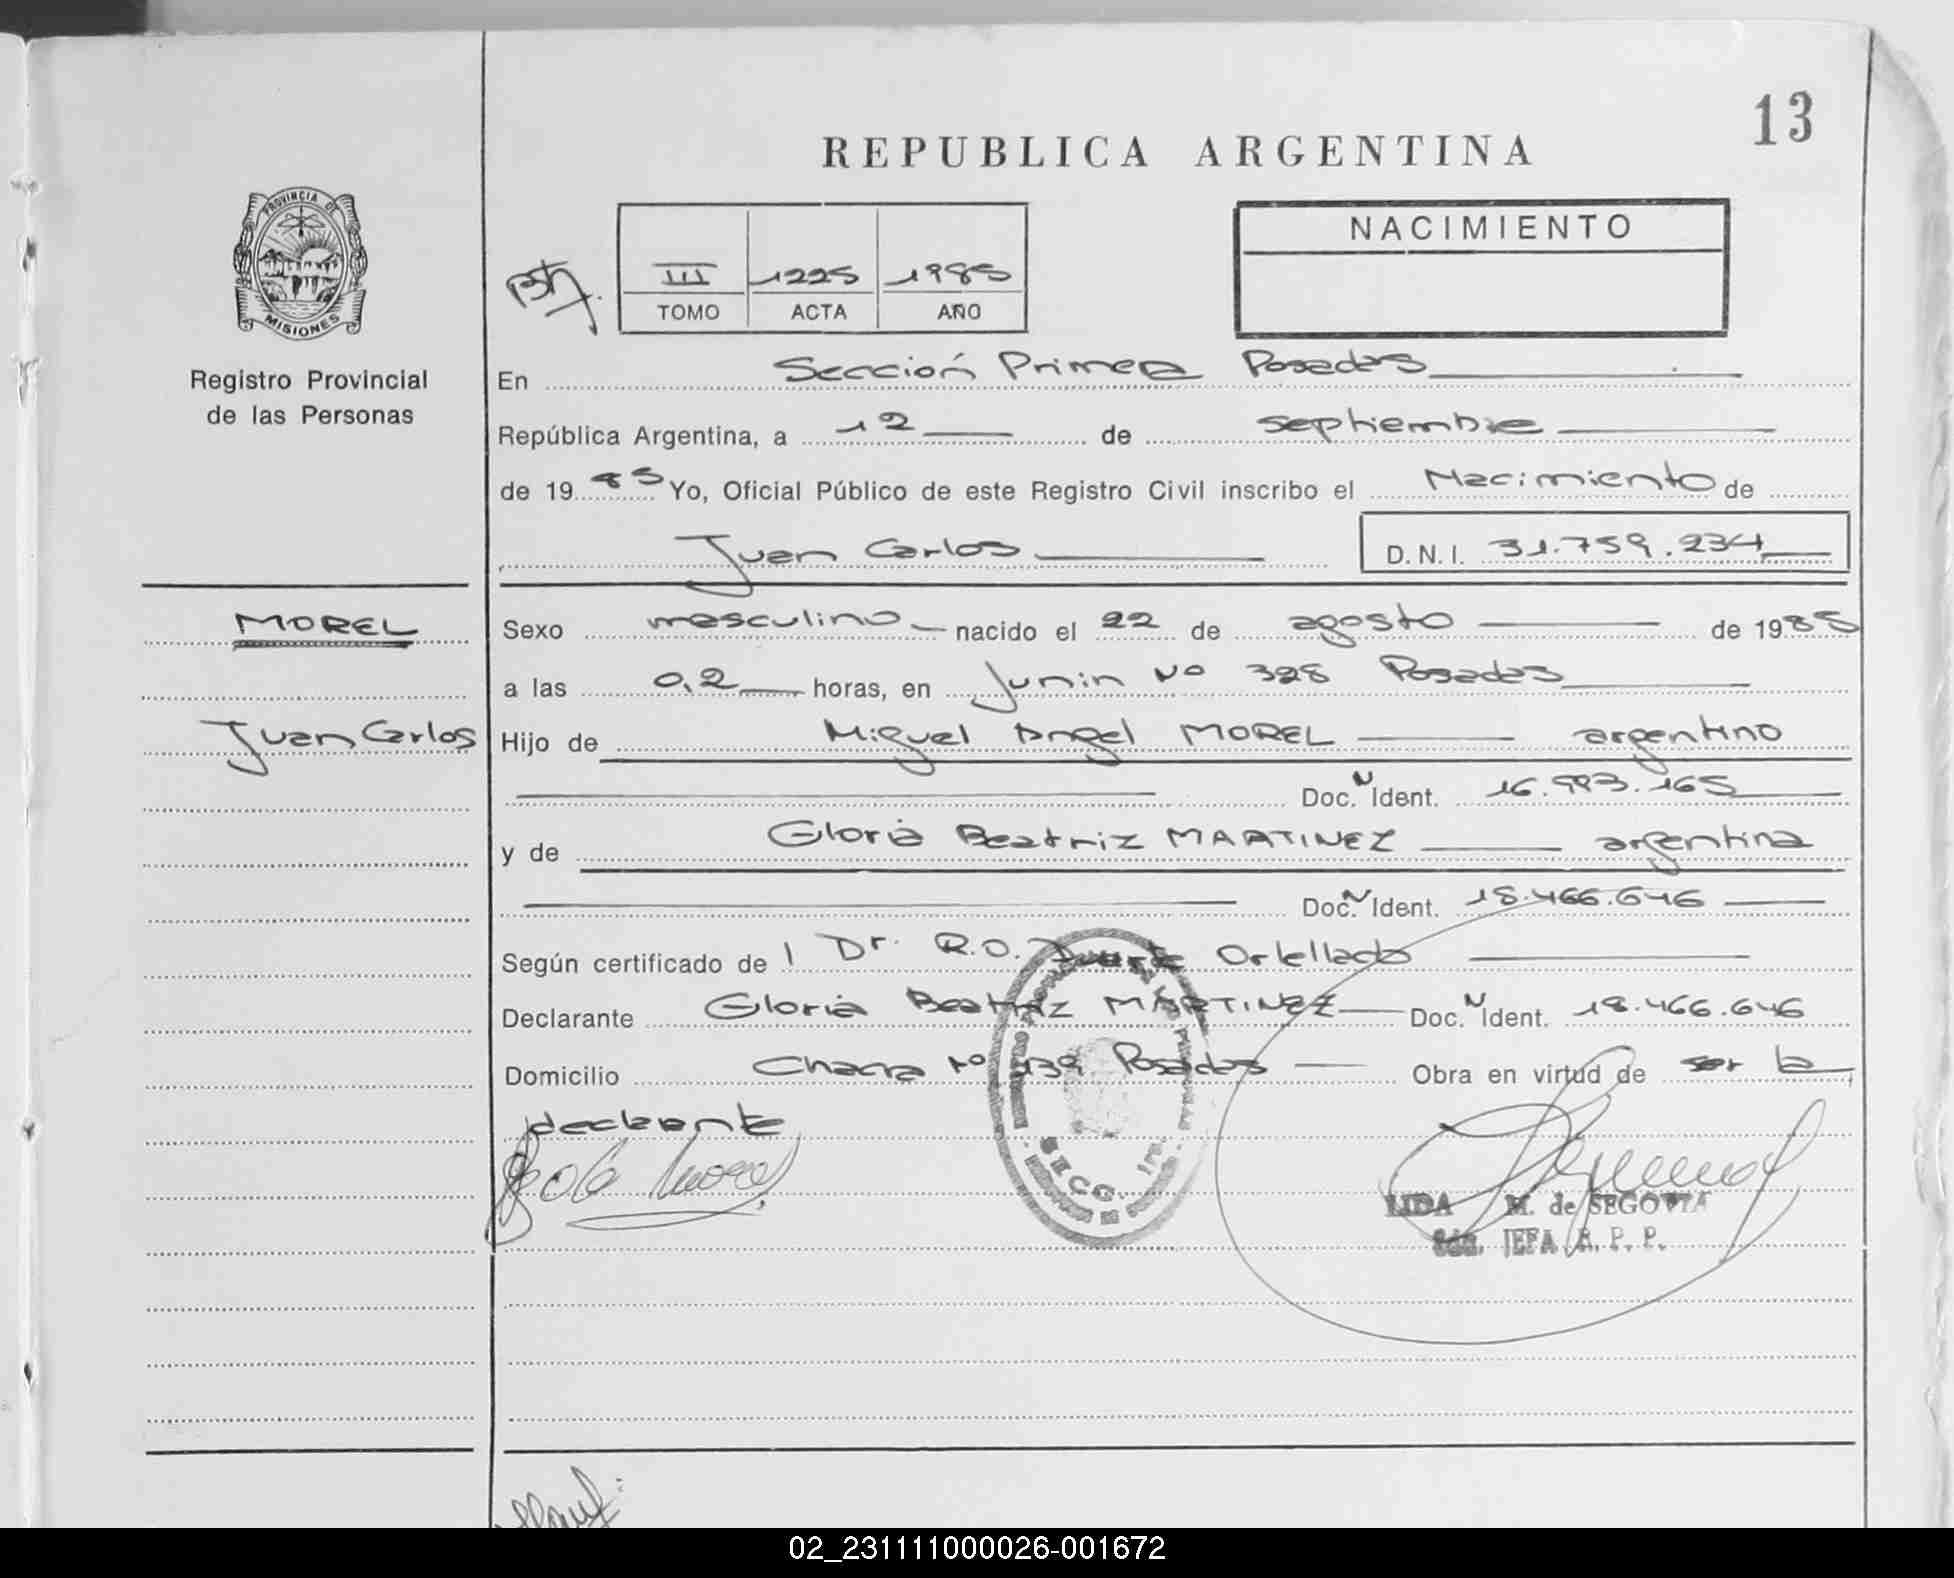 13
REPUBLICA ARGENTINA
PROVINCIA DE
MISIONES
Registro Provincial
de las Personas
III 1225 1985
TOMO ACTA AÑO
NACIMIENTO
En Sección Primera Posadas
República Argentina, a 12 de septiembre
de 19 85 Yo, Oficial Público de este Registro Civil inscribo el Nacimiento de
Juan Carlos D.N.I. 31.759.234
MOREL
Sexo masculino nacido el 22 de agosto de 1985
a las 0,2 horas, en Junin Nº 328 Posadas
Juan Carlos
Hijo de Miguel Angel MOREL argentino
Doc. N Ident. 16.983.165
y de Gloria Beatriz MARTINEZ argentina
Doc. N Ident. 18.466.646
Según certificado de l Dr. R.O. Duarte Ortellado
Declarante Gloria Beatriz MARTINEZ Doc. N Ident. 18.466.646
Domicilio Chacra Nº 139 Posadas Obra en virtud de ser la
declarante
SECC. 1ra.
LIDA M. de SEGOVIA
JEFA R. P. P.
02_231111000026-001672